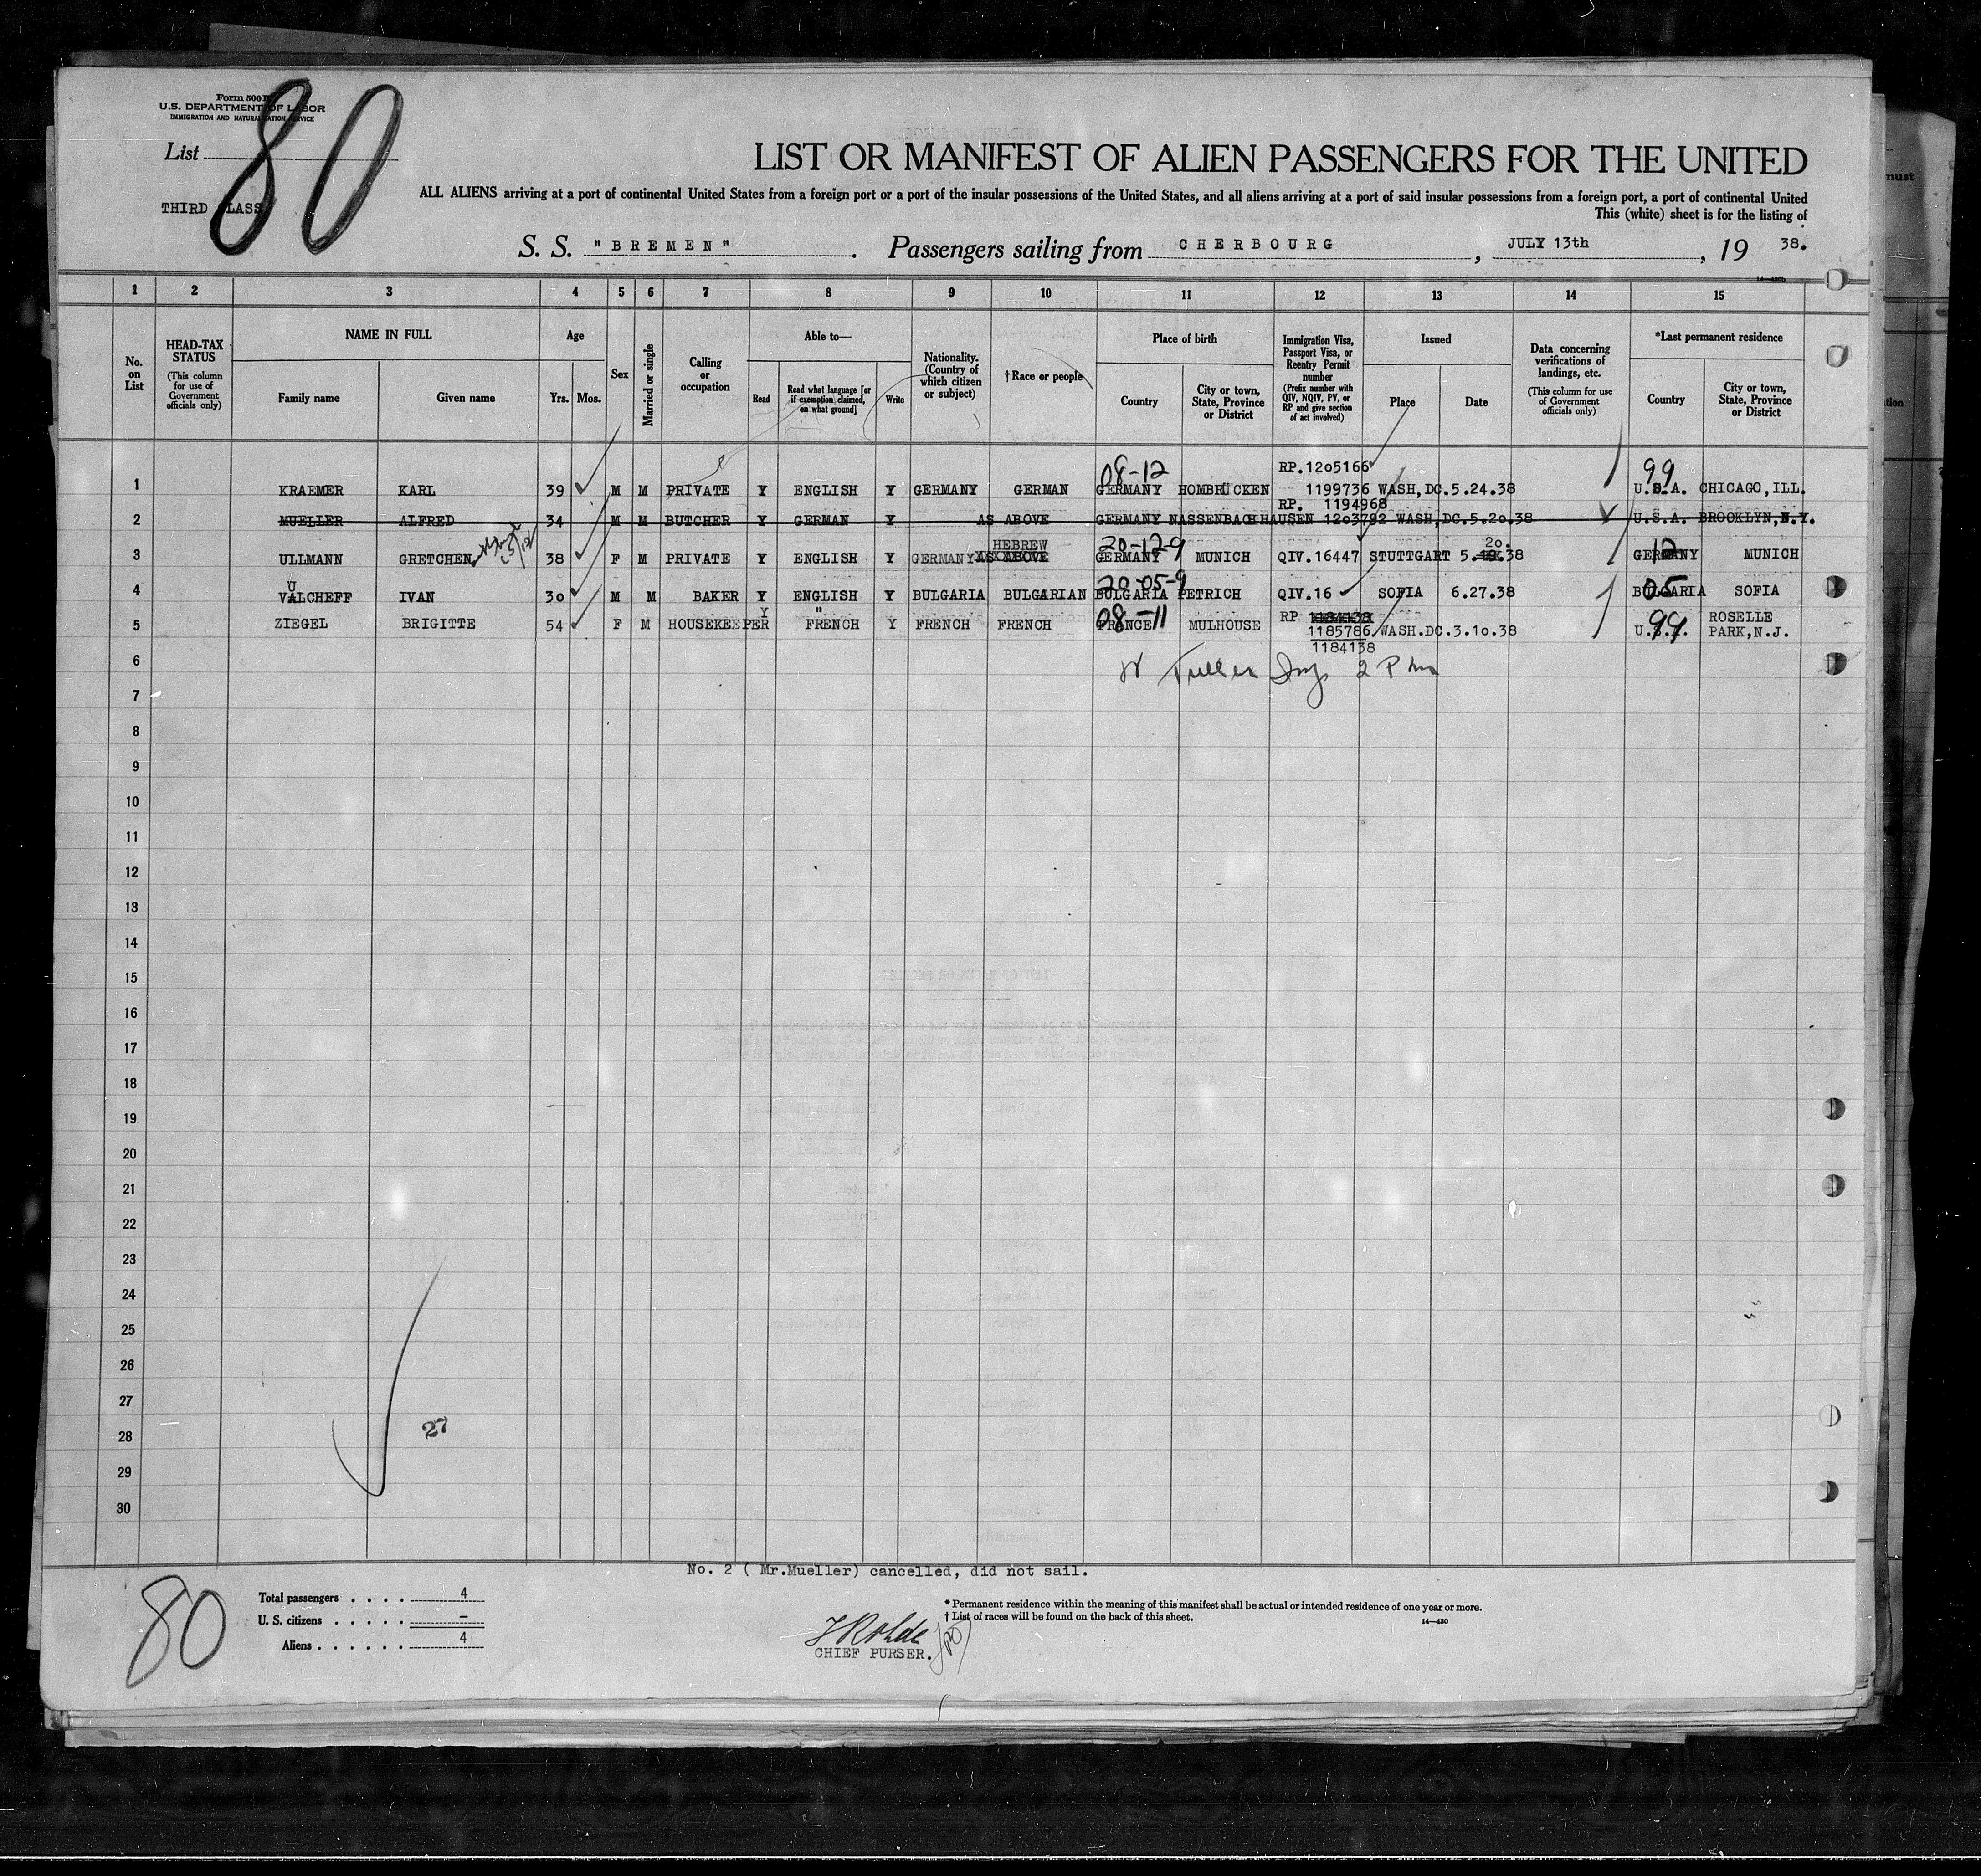 Form 500 B
U.S. DEPARTMENT OF LABOR
IMMIGRATION AND NATURALIZATION SERVICE
List
80
THIRD CLASS
LIST OR MANIFEST OF ALIEN PASSENGERS FOR THE UNITED
ALL ALIENS arriving at a port of continental United States from a foreign port or a port of the insular possessions of the United States, and all aliens arriving at a port of said insular possessions from a foreign port, a port of continental United
This (white) sheet is for the listing of
S. S. "BREMEN". Passengers sailing from CHERBOURG, JULY 13th, 19 38.
14—430b
1 2 3 4 5 6 7 8 9 10 11 12 13 14 15
No. on List
HEAD-TAX STATUS
(This column for use of Government officials only)
NAME IN FULL
Family name Given name
Age
Yrs. Mos.
Sex
Married or single
Calling or occupation
Able to—
Read Read what language [or if exemption claimed, on what ground] Write
Nationality. (Country of which citizen or subject)
†Race or people
Place of birth
Country City or town, State, Province or District
Immigration Visa, Passport Visa, or Reentry Permit number
(Prefix number with QIV, NQIV, PV, or RP and give section of act involved)
Issued
Place Date
Data concerning verifications of landings, etc.
(This column for use of Government officials only)
*Last permanent residence
Country City or town, State, Province or District
08-12 RP.1205166 99
1 KRAEMER KARL 39 M M PRIVATE Y ENGLISH Y GERMANY GERMAN GERMANY HOMBRÜCKEN 1199736 WASH,DC.5.24.38 U.S.A. CHICAGO,ILL.
RP. 1194968
2 MUELLER ALFRED 34 M M BUTCHER Y GERMAN Y AS ABOVE GERMANY NASSENBACHHAUSEN 1203792 WASH,DC.5.20.38 U.S.A. BROOKLYN,N.Y.
HEBREW 20-12-9 20. 12
3 ULLMANN GRETCHEN 38 F M PRIVATE Y ENGLISH Y GERMANY AS ABOVE GERMANY MUNICH QIV.16447 STUTTGART 5.19.38 GERMANY MUNICH
U 20-05-9 05
4 VALCHEFF IVAN 30 M M BAKER Y ENGLISH Y BULGARIA BULGARIAN BULGARIA PETRICH QIV.16 SOFIA 6.27.38 BULGARIA SOFIA
Y " 08-11 RP 1184138 99 ROSELLE
5 ZIEGEL BRIGITTE 54 F M HOUSEKEEPER FRENCH Y FRENCH FRENCH FRANCE MULHOUSE 1185786 WASH.DC.3.10.38 U.S.A. PARK,N.J.
1184138
6
2 P m
7
8
9
10
11
12
13
14
15
16
17
18
19
20
21
22
23
24
25
26
27
27
28
29
30
No. 2 ( Mr.Mueller) cancelled, did not sail.
80
Total passengers . . . . 4
U. S. citizens . . . . . –
Aliens . . . . . . 4
* Permanent residence within the meaning of this manifest shall be actual or intended residence of one year or more.
† List of races will be found on the back of this sheet.
14—430
CHIEF PURSER.